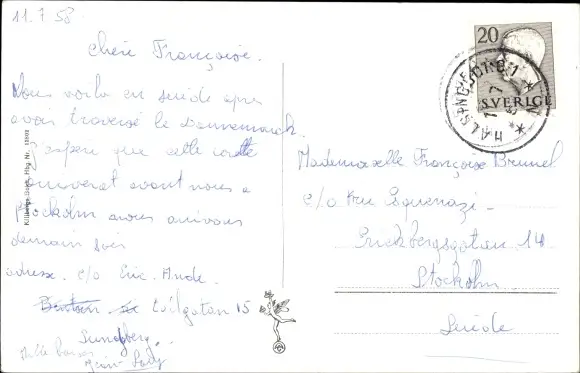 11.7.58
Chère Françoise.
Nous voila en suède après
avoir traversé le Dannemarck.
J'espere que cette carte
avant nous a
Stockolm nous arrivons
demain soir
adresse. c/o Eric. Ande.
Vilgatan 15
Sundbyberg.
Mille baisers
Jean
Killbergs Bokh. Hbg Nr.
20
SVERIGE
HÄLSINGBORG 1
Mademoiselle Françoise Brunel
c/o
Erickbergsgatan 14
Stockolm
Suède